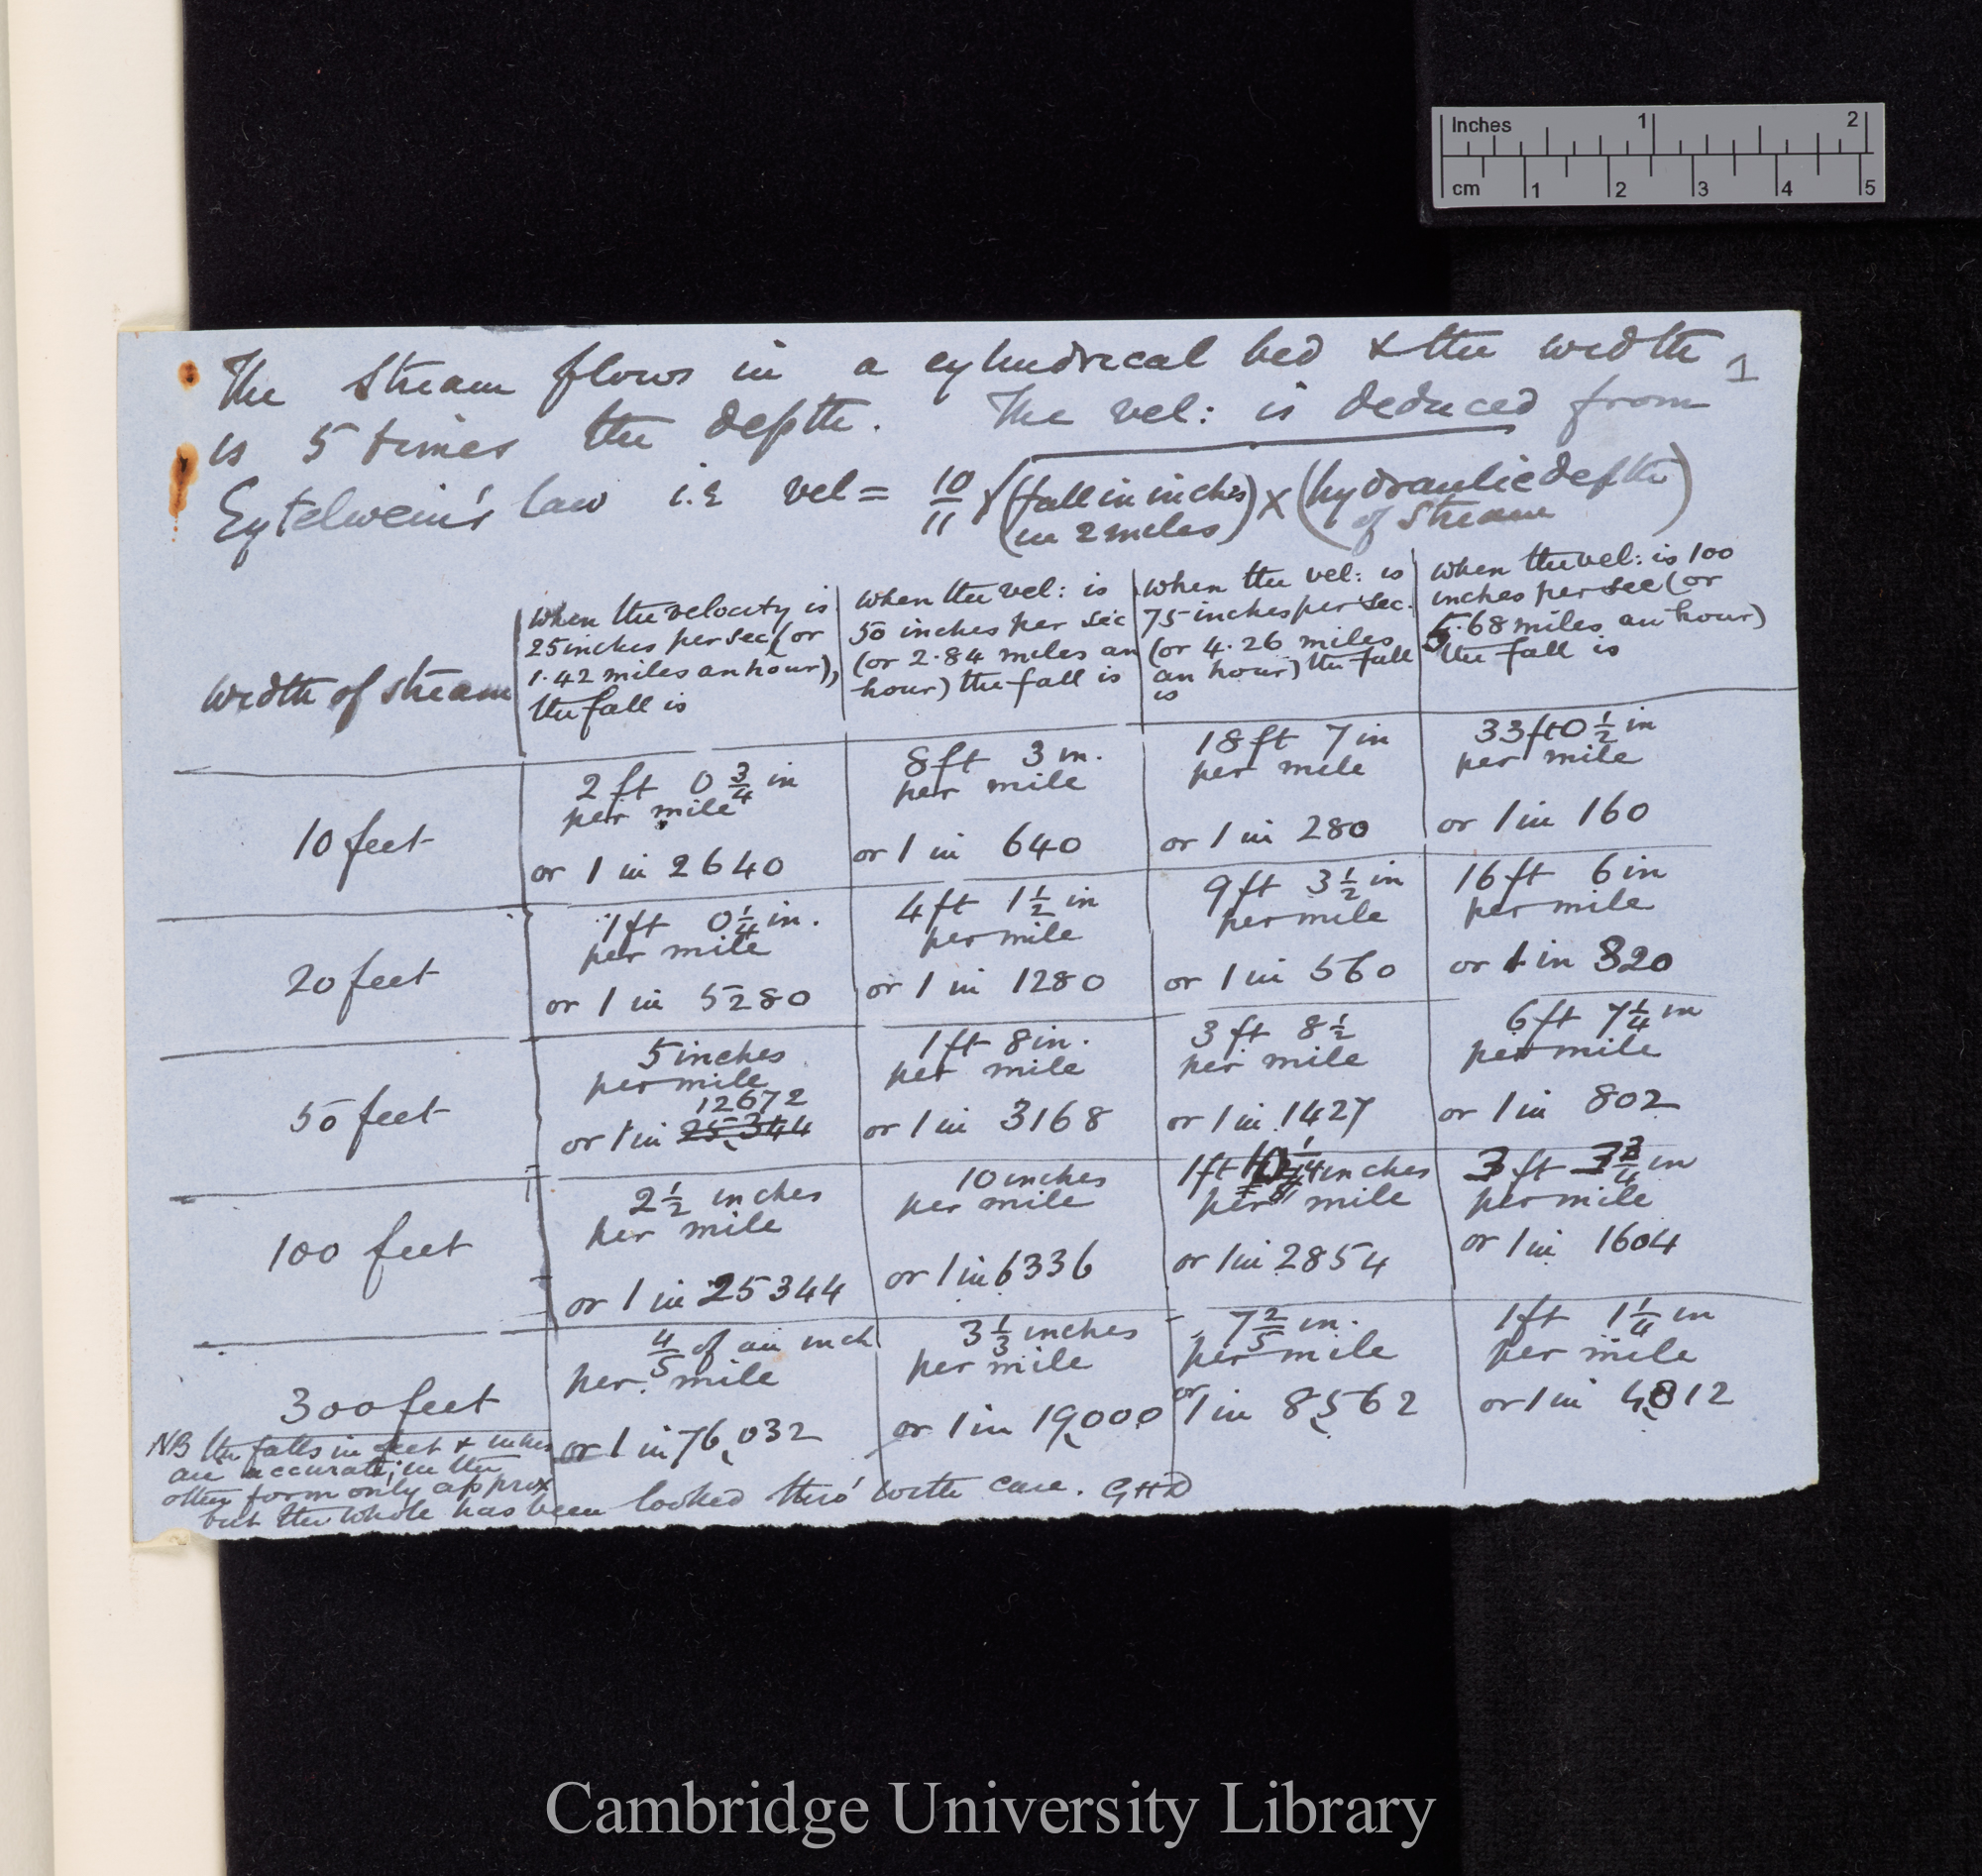 Inches 1 2
cm 1 2 3 4 5
The stream flows in a cylindrical bed & the width 1
is 5 times the depth. The vel: is deduced from
Eytelwein's law i.e vel = 10/11 √(fall in inches in 2 miles) × (hydraulic depth of stream)
width of stream
When the velocity is
25 inches per sec (or
1.42 miles an hour),
the fall is
When the vel: is
50 inches per sec
(or 2.84 miles an
hour) the fall is
When the vel: is
75 inches per sec.
(or 4.26 miles
an hour) the fall
is
When the vel: is 100
inches per sec (or
5.68 miles an hour)
the fall is
10 feet
2 ft 0 3/4 in
per mile
or 1 in 2640
8 ft 3 in.
per mile
or 1 in 640
18 ft 7 in
per mile
or 1 in 280
33 ft 0 1/2 in
per mile
or 1 in 160
20 feet
1 ft 0 1/4 in.
per mile
or 1 in 5280
4 ft 1 1/2 in
per mile
or 1 in 1280
9 ft 3 1/2 in
per mile
or 1 in 560
16 ft 6 in
per mile
or 1 in 320
50 feet
5 inches
per mile
12672
or 1 in 25,344
1 ft 8 in.
per mile
or 1 in 3168
3 ft 8 1/2
per mile
or 1 in 1427
6 ft 7 1/4 in
per mile
or 1 in 802
100 feet
2 1/2 inches
per mile
or 1 in 25344
10 inches
per mile
or 1 in 6336
1 ft inches
per mile
or 1 in 2854
3 ft 3 3/4 in
per mile
or 1 in 1604
300 feet
4/5 of an inch
per mile
or 1 in 76,032
3 1/3 inches
per mile
or 1 in 19,000
7 2/5 in.
per mile
or 1 in 8,562
1 ft 1 1/4 in
per mile
or 1 in 4,812
NB the falls in feet & inches
are accurate; in the
other form only approx
but the whole has been looked thro' with care. GHD
Cambridge University Library